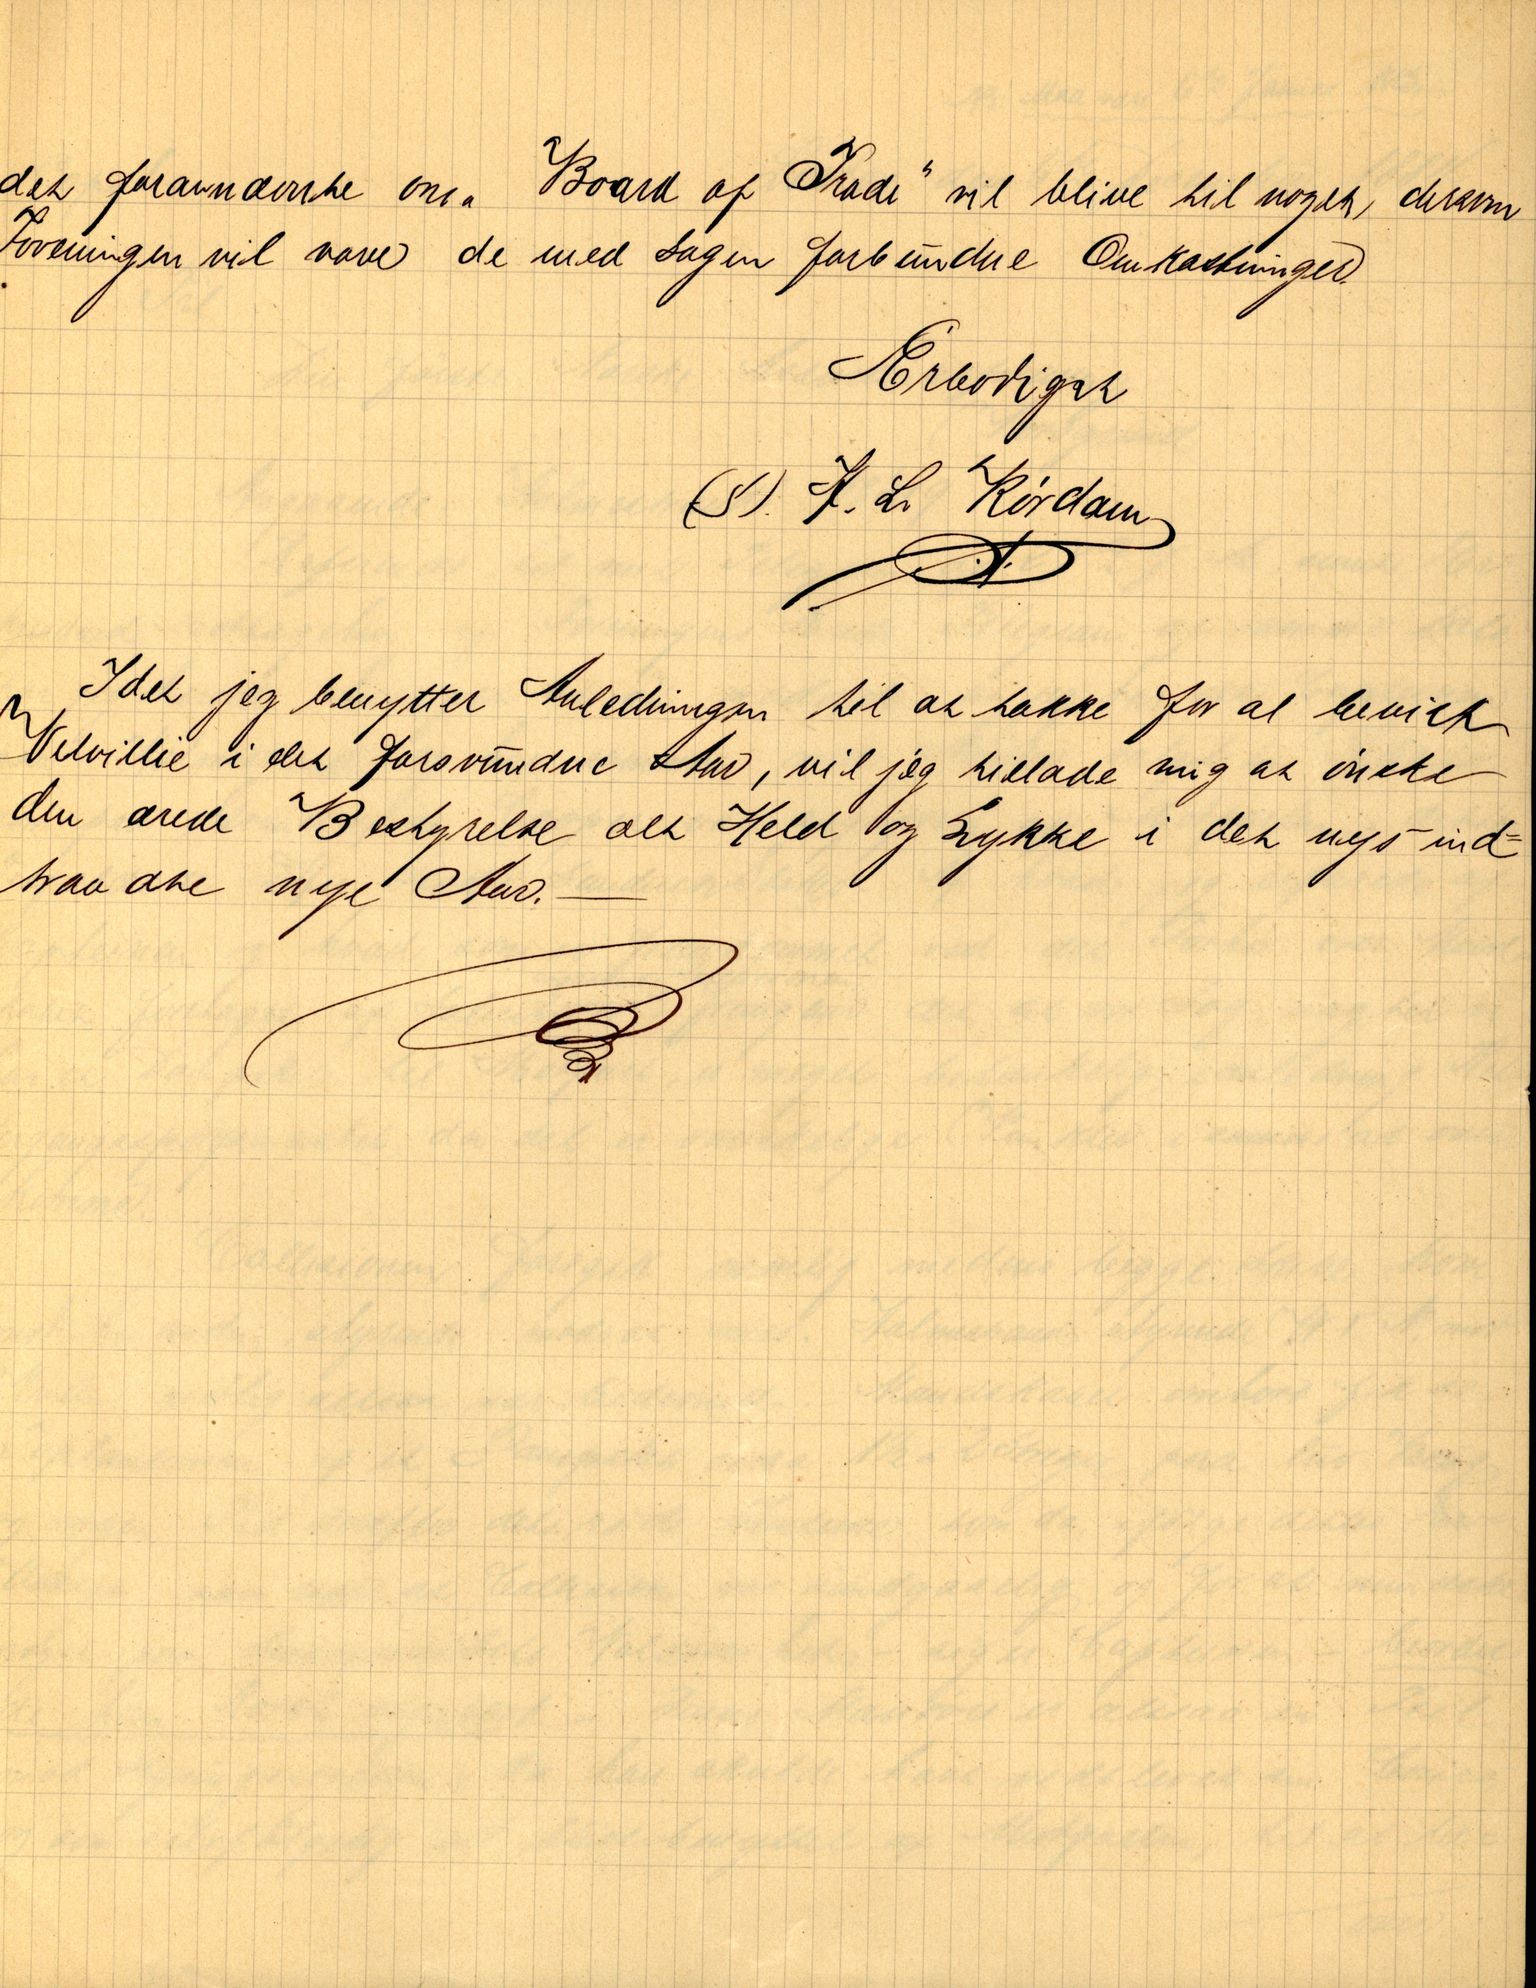 det foranunderske om „Board of Trade" vil blive til noget, dersom
Foreningen vil vove de med Sagen forbundne Omkostninger.
Ærbødigst
(S). H. L. Rørdam
Idet jeg benytter Anledningen til at takke for al bevist
Velvillie i det forsvundne Aar, vil jeg tillade mig at ønske
den ærede Bestyrelse alt Held og Lykke i det nys ind=
traadte nye Aar. —